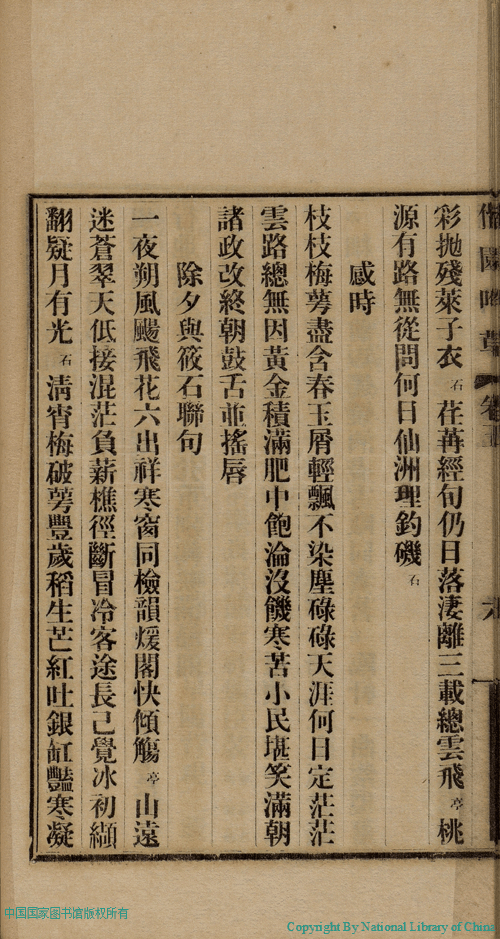 園吟草 卷五 六
彩拋殘萊子衣 石 荏苒經旬仍日落淒離三載總雲飛 亭 桃
源有路無從問何日仙洲理釣磯 石
感時
枝枝梅萼盡含春玉屑輕飄不染塵碌碌天涯何日定茫茫
雲路總無因黃金積滿肥中飽淪沒饑寒苦小民堪笑滿朝
諸政改終朝鼓舌並搖唇
除夕與筱石聯句
一夜朔風颺飛花六出祥寒窗同檢韻煖閣快傾觴 亭 山遠
迷蒼翠天低接混茫負薪樵徑斷冒冷客途長已覺冰初纈
翻疑月有光 石 清宵梅破萼豐歲稻生芒紅吐銀缸豔寒凝
中国国家图书馆版权所有
Copyright By National Library of China